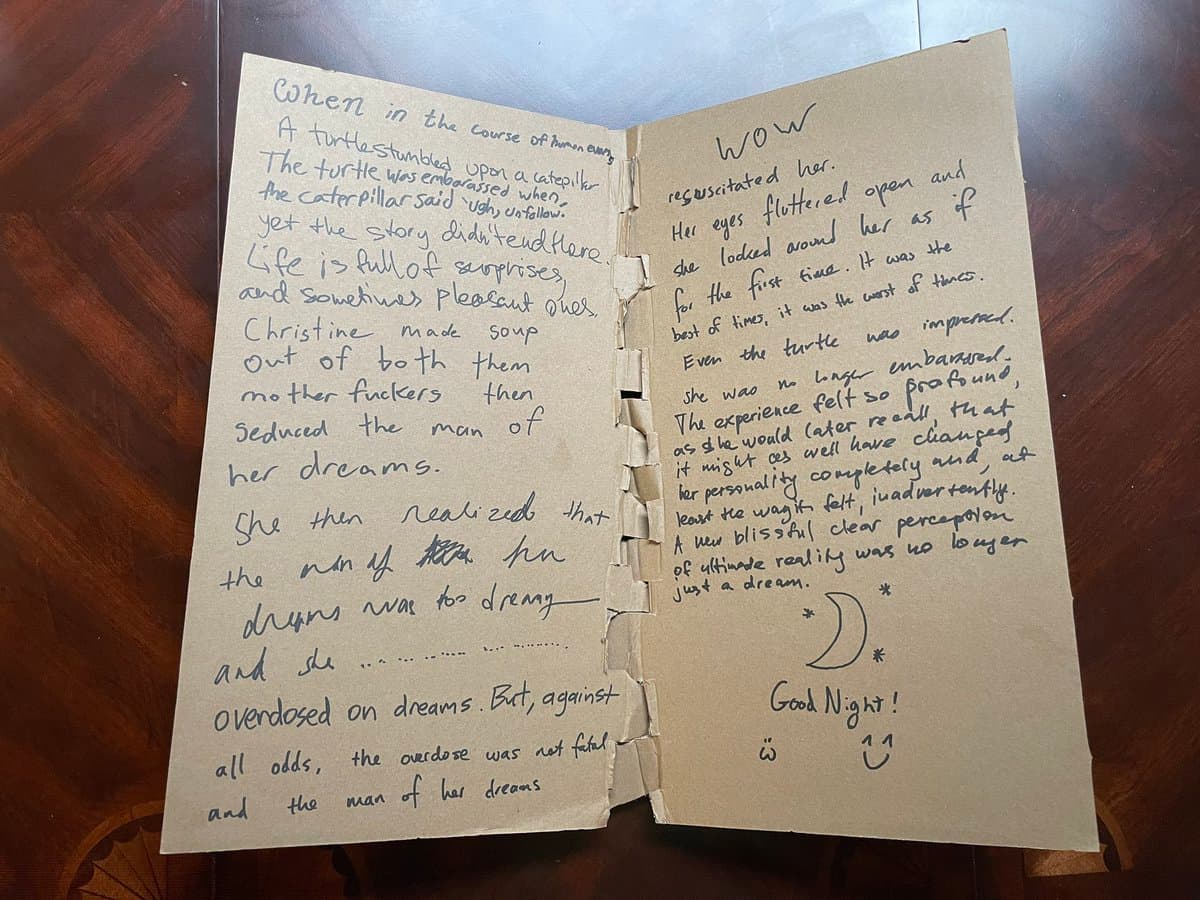 When in the course of human events
A turtle stumbled upon a catepillar
The turtle was embarassed when,
the caterpillar said "ugh, unfollow.
yet the story didn't end there
Life is full of surprises,
and sometimes pleasant ones.
Christine made soup
out of both them
mother fuckers then
seduced the man of
her dreams.
She then realized that
the man of her
dreams was too dreamy
and she ..................
overdosed on dreams. But, against
all odds, the overdose was not fatal
and the man of her dreams
WOW
ressuscitated her.
Her eyes fluttered open and
she looked around her as if
for the first time. It was the
best of times, it was the worst of times.
Even the turtle was impressed.
she was no longer embarassed.
The experience felt so profound,
as she would later recall, that
it might as well have changed
her personality completely and, at
least the way it felt, inadvertently.
A new blissful clear perception
of ultimate reality was no longer
just a dream.
Good Night!